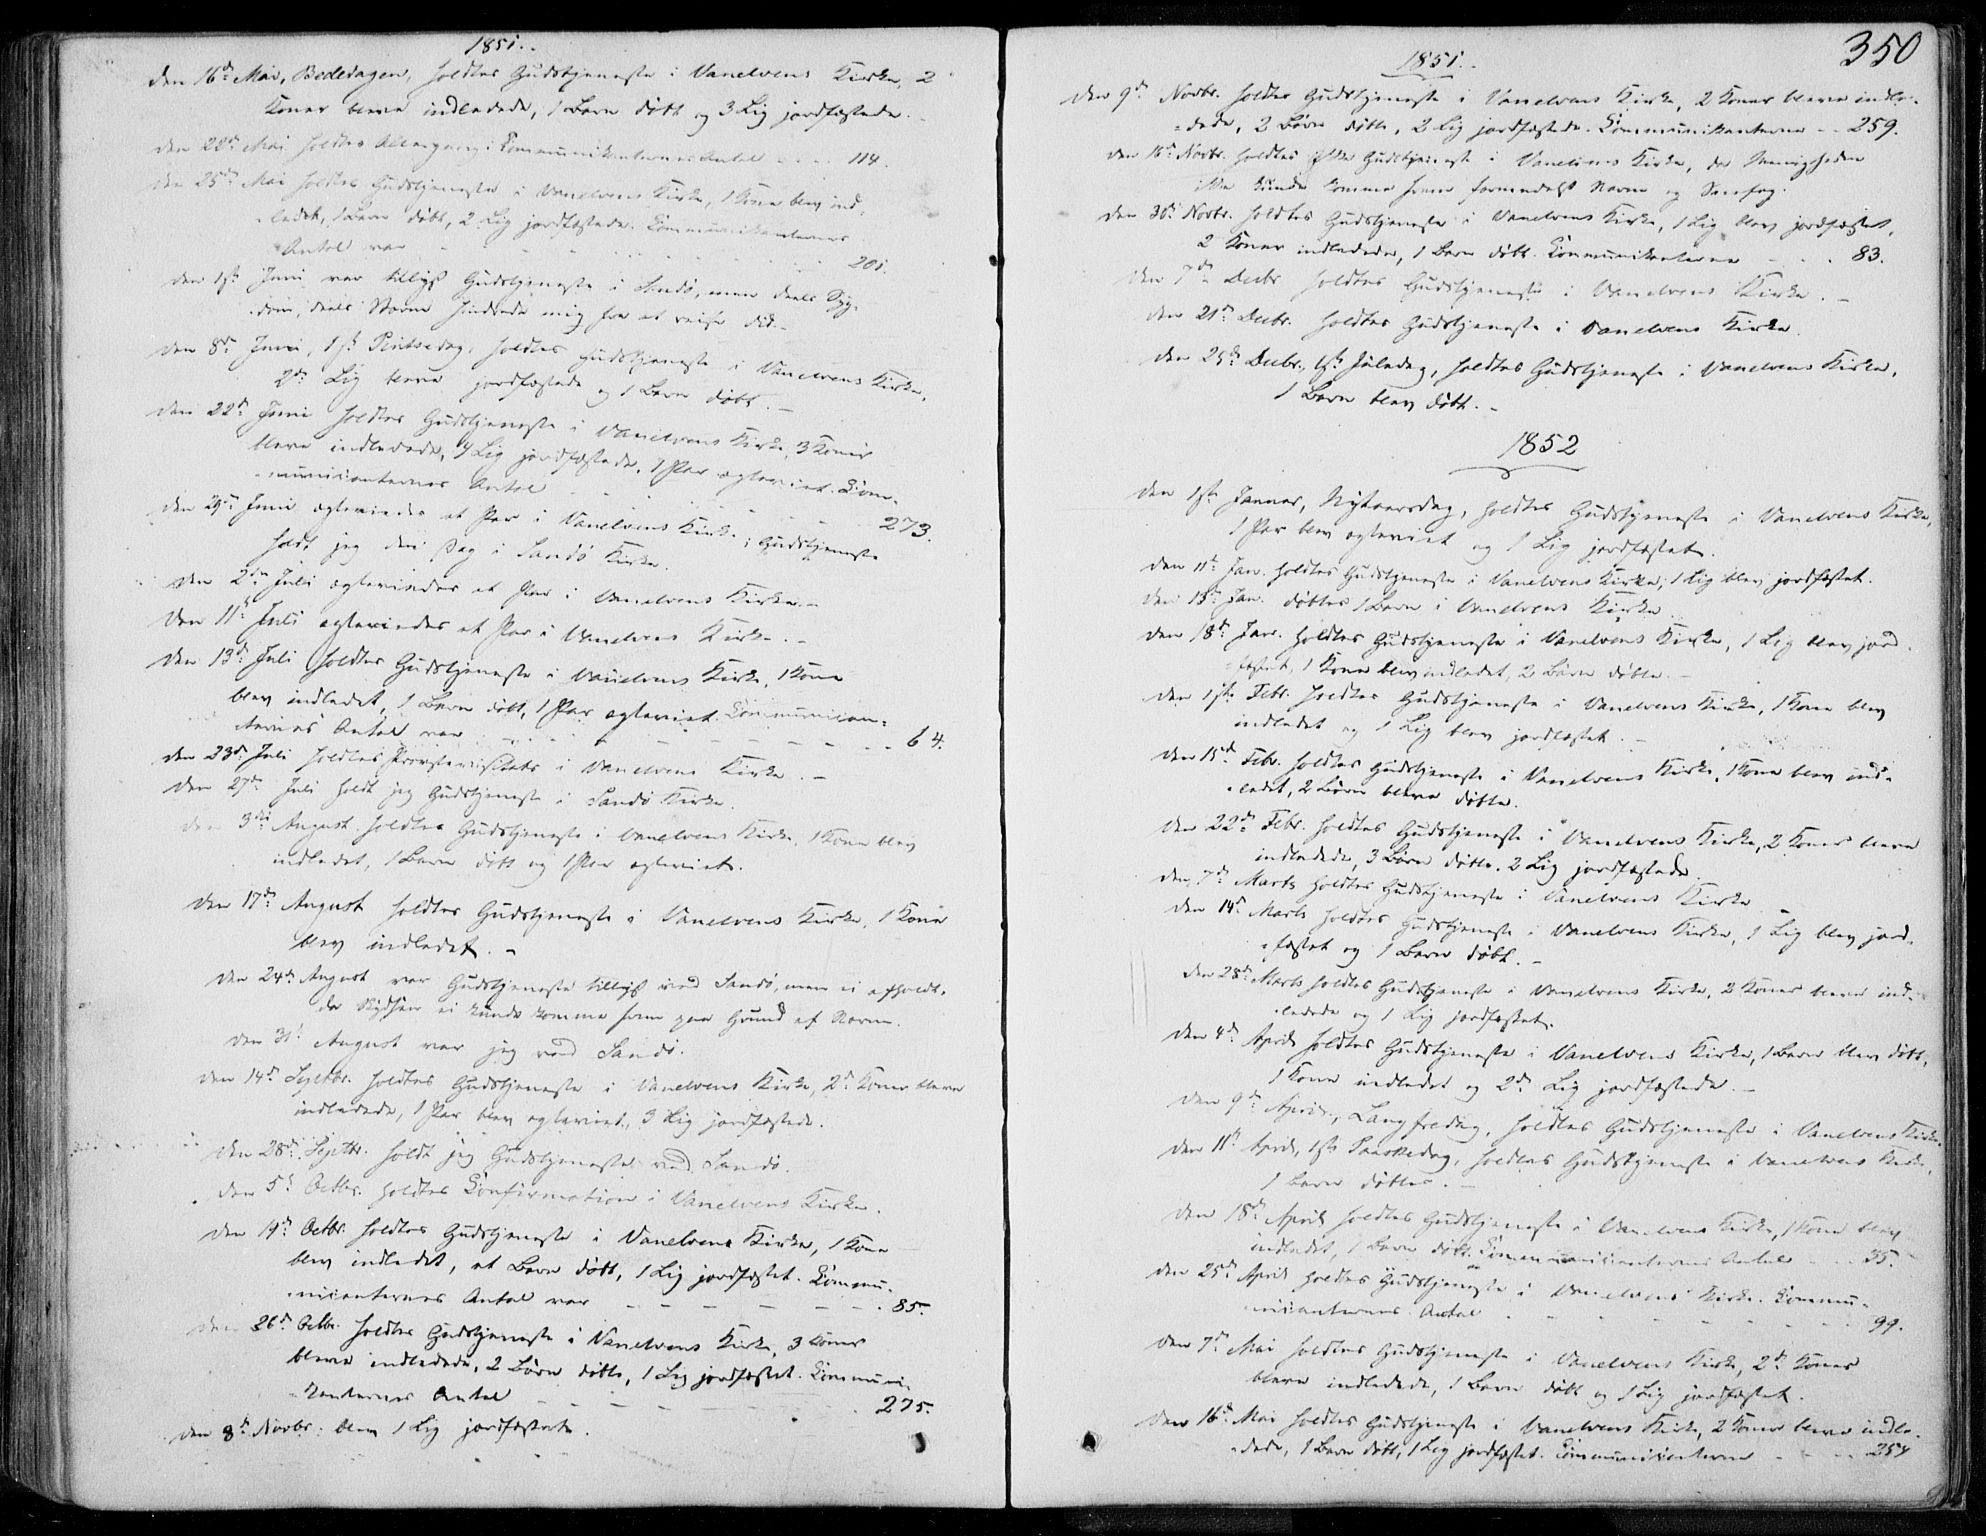 1851.
den 16de Mai, Bededagen, holdtes Gudstjeneste i Vanelvens Kirke, 2
Koner bleve indledede, 1 Barn døbt og 3 Lig jordfæstede.
den 22de Mai holdtes Altergang; Communikanternes Antal - - - 114.
den 25de Mai holdtes Gudstjeneste i Vanelvens Kirke, 1 Kone blev ind-
-ledet, 1 Barn døbt, 2 Lig jordfæstede. Communikanternes
Antal var - - - - - - 201.
den 1ste Juni var tillyst Gudstjeneste i Sandø, men deels Syg-
-dom, deels Storm hindrede mig fra at reise did.-
den 8de Juni, 1ste Pintsedag, holdtes Gudstjeneste i Vanelvens Kirke,
2de Lig bleve jordfæstede og 1 Barn døbt.-
den 22de Juni holdtes Gudstjeneste i Vanelvens Kirke, 3 Koner
bleve indledede, 4 Lig jordfæstede, 1 Par egteviet. Com-
-municanternes Antal - - - - - 273.
den 29de Juni egteviedes et Par i Vanelvens Kirke; Gudstjeneste
holdt jeg den Dag i Sandø Kirke.
den 2den Juli egteviedes et Par i Vanelvens Kirke.-
den 11te Juli egteviedes et Par i Vanelvens Kirke.-
den 13de Juli holdtes Gudstjeneste i Vanelvens Kirke, 1 Kone
blev indledet, 1 Barn døbt, 1 Par egteviet. Communican-
-ternes Antal var - - - - - - 64.
den 23de Juli holdtes Provstevisitats i Vanelvens Kirke.-
den 27de Juli holdt jeg Gudstjeneste i Sandø Kirke.
den 3die August holdtes Gudstjeneste i Vanelvens Kirke, 1 Kone blev
indledet, 1 Barn døbt og 1 Par egteviet.
den 17de August holdtes Gudstjeneste i Vanelvens Kirke, 1 Kone
blev indledet.-
den 24de August var Gudstjeneste tillyst ved Sandø, men ei afholdt,
da Skydsen ei kunde komme frem paa Grund af Storm.
den 31te August var jeg ved Sandø.
den 14de Septbr. holdtes Gudstjeneste i Vanelvens Kirke, 2de Koner bleve
indledede, 1 Par blev egteviet, 3 Lig jordfæstede.
den 28de Septbr. holdt jeg Gudstjeneste ved Sandø.
den 5te Octbr. holdtes Confirmation i Vanelvens Kirke.
den 19de Octbr. holdtes Gudstjeneste i Vanelvens Kirke, 1 Kone
blev indledet, et Barn døbt, 1 Lig jordfæstet. Commu-
-nicanternes Antal var - - - - - - 85.
den 26de Octbr. holdtes Gudstjeneste i Vanelvens Kirke, 3 Koner
bleve indledede, 2 Børn døbte, 1 Lig jordfæstet. Communi-
-kanternes Antal - - - - - - 275.
den 8de Novbr. blev 1 Lig jordfæstet.
350
1851.
den 9de Novbr. holdtes Gudstjeneste i Vanelvens Kirke, 2 Koner bleve indle-
-dede, 2 Børn døbte, 2 Lig jordfæstede. Communikanterne - - 259.
den 16de Novbr. holdtes ikke Gudstjeneste i Vanelvens Kirke, da Menigheden
ikke kunde komme frem formedelst Storm og Snefog.
den 30te Novbr. holdtes Gudstjeneste i Vanelvens Kirke, 1 Lig blev jordfæstet,
2 Koner indledede, 1 Barn døbt. Communikanterne - - - 83.
den 7de Decbr holdtes Gudstjeneste i Vanelvens Kirke.-
den 21de Decbr. holdtes Gudstjeneste i Vanelvens Kirke.
den 25de Decbr., 1ste Juledag, holdtes Gudstjeneste i Vanelvens Kirke,
1 Barn blev døbt.-
1852
den 1ste Januar, Nytaarsdag, holdtes Gudstjeneste i Vanelvens Kirke,
1 Par blev egteviet og 1 Lig jordfæstet.
den 11te Jan. holdtes Gudstjeneste i Vanelvens Kirke; 1 Lig blev jordfæstet.
den 15de Jan. døbtes 1 Barn i Vanelvens Kirke
den 18de Jan. holdtes Gudstjeneste i Vanelvens Kirke, 1 Lig blev jord-
-fæstet, 1 Kone blev indledet, 2 Børn døbte.-
den 1ste Febr. holdtes Gudstjeneste i Vanelvens Kirke, 1 Kone blev
indledet og 1 Lig blev jordfæstet.-
den 15de Febr. holdtes Gudstjeneste i Vanelvens Kirke, 1 Kone blev ind-
-ledet, 2 Børn bleve døbte.
den 22de Febr. holdtes Gudstjeneste i Vanelvens Kirke, 2 Koner bleve
indledede, 3 Børn døbte, 2 Lig jordfæstede.
den 7de Marts holdtes Gudstjeneste i Vanelvens Kirke
den 14de Marts holdtes Gudstjeneste i Vanelvens Kirke, 1 Lig blev jord-
-fæstet og 1 Barn døbt.-
den 28de Marts holdtes Gudstjeneste i Vanelvens Kirke, 2 Koner bleve ind-
-ledede og 1 Lig jordfæstet.
den 4de April holdtes Gudstjeneste i Vanelvens Kirke, 1 Barn blev døbt,
1 Kone indledet og 2de Lig jordfæstede.-
den 9de April, Langfredag, holdtes Gudstjeneste i Vanelvens Kirke.
den 11te April, 1ste Paaskedag, holdtes Gudstjeneste i Vanelvens Kirke,
1 Barn døbtes.-
den 18de April holdtes Gudstjeneste i Vanelvens Kirke, 1 Kone blev
indledet, 1 Barn døbt. Communicanternes Antal - - - 35.
den 25de April holdtes Gudstjeneste i Vanelvens Kirke. Commu-
-nicanternes Antal - - - - - - 99.
den 7de Mai holdtes Gudstjeneste i Vanelvens Kirke, 2de Koner
bleve indledede, 1 Barn døbt og 1 Lig jordfæstet.
den 16de Mai holdtes Gudstjeneste i Vanelvens Kirke, 2 Koner bleve indle-
-dede, 1 Barn døbt, 1 Lig jordfæstet. Communicanterne - - - 254